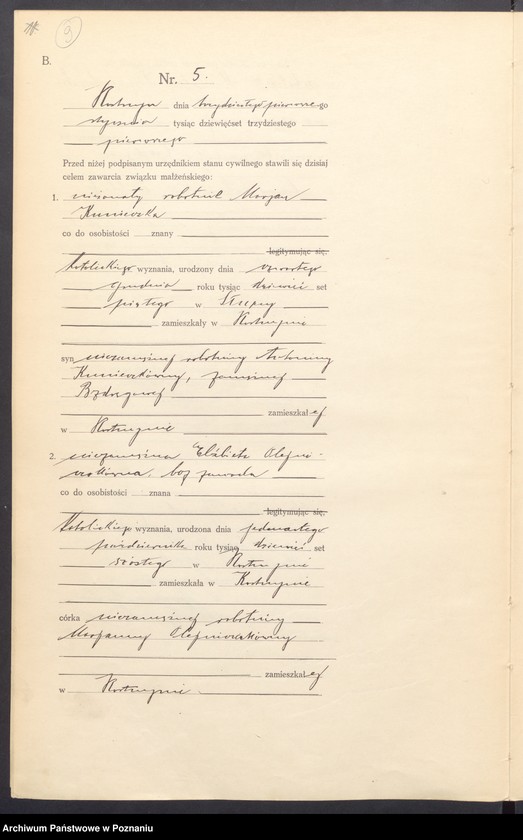 9
B.
Nr. 5.
dnia trzydziestego pierwszego
stycznia tysiąc dziewięćset trzydziestego
pierwszego
Przed niżej podpisanym urzędnikiem stanu cywilnego stawili się dzisiaj
celem zawarcia związku małżeńskiego:
1. robotnik Marjan
co do osobistości znany
legitymując się,
katolickiego wyznania, urodzony dnia czwartego
grudnia roku tysiąc dziewięć set
piątego w Słupcy
zamieszkały w Kostrzynie
syn niezamężnej robotnicy Antoniny
zamężnej
zamieszkałej
w Kostrzynie
2. niezamężna Elżbieta Olejni-
czakówna, bez zawodu
co do osobistości znana
legitymując się,
katolickiego wyznania, urodzona dnia jedenastego
października roku tysiąc dziewięć set
szóstego w Kostrzynie
zamieszkała w Kostrzynie
córka niezamężnej robotnicy
Marjanny Olejniczakówny
zamieszkałej
w Kostrzynie
Archiwum Państwowe w Poznaniu